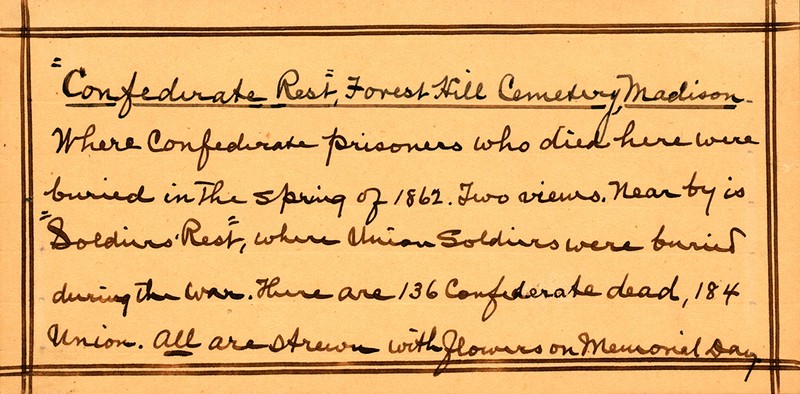 "Confederate Rest", Forest Hill Cemetery, Madison.
Where Confederate prisoners who died here were
buried in the spring of 1862. Two views. Near by is
"Soldiers' Rest", where Union Soldiers were buried
during the war. There are 136 Confederate dead, 184
Union. All are strewn with flowers on Memorial Day